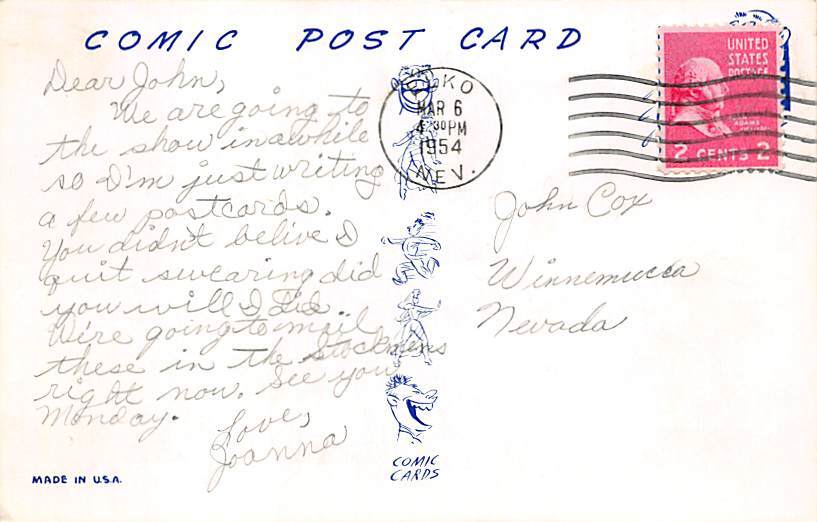 COMIC POST CARD
Dear John,
We are going to
the show in awhile
so I'm just writing
a few postcards.
You didn't belive I
quit swearing did
you will I Did.
We're going to mail
these in the Stockmens
right now. See you
Monday.
Love,
Joanna
MADE IN U.S.A.
COMIC
CARDS
ELKO
MAR 6
4:30 PM
1954
NEV.
UNITED
STATES
POSTAGE
ADAMS
2 CENTS 2
John Cox
Winnemucca
Nevada